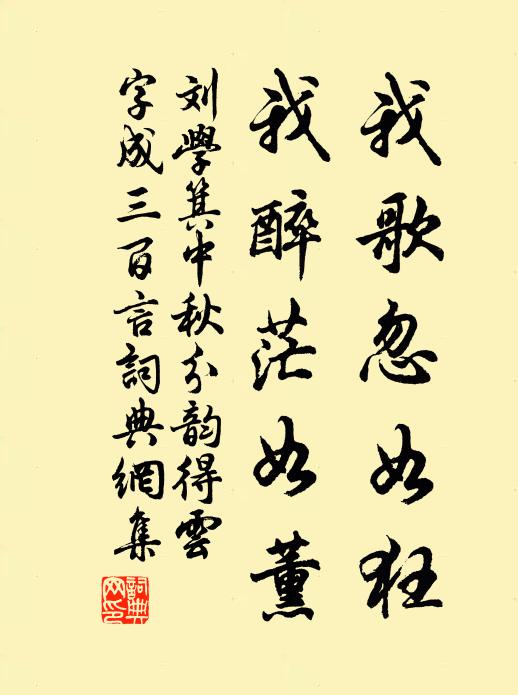 我歌忽如狂
我醉茫如薰
刘學箕中秋分韵得雲
字成三百言詞典網集
詞典
网印